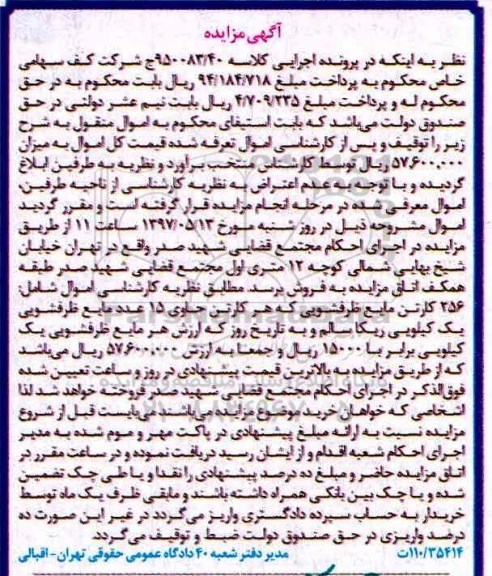 آگهی مزایده
نظر به اینکه در پرونده اجرایی کلاسه ۹۵۰۰۸۳/۴۰ج شرکت کف سهامی
خاص محکوم به پرداخت مبلغ ۹۴/۱۸۴/۷۱۸ ریال بابت محکوم به در حق
محکوم له و پرداخت مبلغ ۴/۷۰۹/۲۳۵ ریال بابت نیم عشر دولتی در حق
صندوق دولت می‌باشد که بابت استیفای محکوم به اموال منقول به شرح
زیر را توقیف و پس از کارشناسی اموال تعرفه شده قیمت کل اموال به میزان
۵۷،۶۰۰،۰۰۰ ریال توسط کارشناس منتخب برآورد و نظریه به طرفین ابلاغ
گردیده و با توجه به عدم اعتراض به نظریه کارشناسی از ناحیه طرفین،
اموال معرفی شده در مرحله انجام مزایده قرار گرفته است و مقرر گردید
اموال مشروحه ذیل در روز شنبه مورخ ۱۳۹۷/۰۵/۱۳ ساعت ۱۱ از طریق
مزایده در اجرای احکام مجتمع قضایی شهید صدر واقع در تهران خیابان
شیخ بهایی شمالی کوچه ۱۲ متری اول مجتمع قضایی شهید صدر طبقه
همکف اتاق مزایده به فروش برسد. مطابق نظریه کارشناسی اموال شامل:
۲۵۶ کارتن مایع ظرفشویی که هر کارتن حاوی ۱۵ عدد مایع ظرفشویی
یک کیلویی ریکا سالم و به تاریخ روز که ارزش هر مایع ظرفشویی یک
کیلویی برابر با ۱۵۰۰۰ ریال و جمعا به ارزش ۵۷،۶۰۰،۰۰۰ ریال می‌باشد
که از طریق مزایده به بالاترین قیمت پیشنهادی در روز و ساعت تعیین شده
فوق‌الذکر در اجرای احکام مجتمع قضایی شهید صدر فروخته خواهد شد لذا
اشخاصی که خواهان خرید موضوع مزایده می‌باشند می‌بایست قبل از شروع
مزایده نسبت به ارائه مبلغ پیشنهادی در پاکت مهر و موم شده به مدیر
اجرای احکام شعبه اقدام و از ایشان رسید دریافت نموده و در ساعت مقرر در
اتاق مزایده حاضر و مبلغ ده درصد پیشنهادی را نقدا و یا طی چک تضمین
شده و یا چک بین بانکی همراه داشته باشند و مابقی ظرف یک ماه توسط
خریدار به حساب سپرده دادگستری واریز می‌گردد در غیر این صورت ده
درصد واریزی در حق صندوق دولت ضبط و توقیف می‌گردد.
۱۱۰/۳۵۴۱۴ت مدیر دفتر شعبه ۴۰ دادگاه عمومی حقوقی تهران- اقبالی